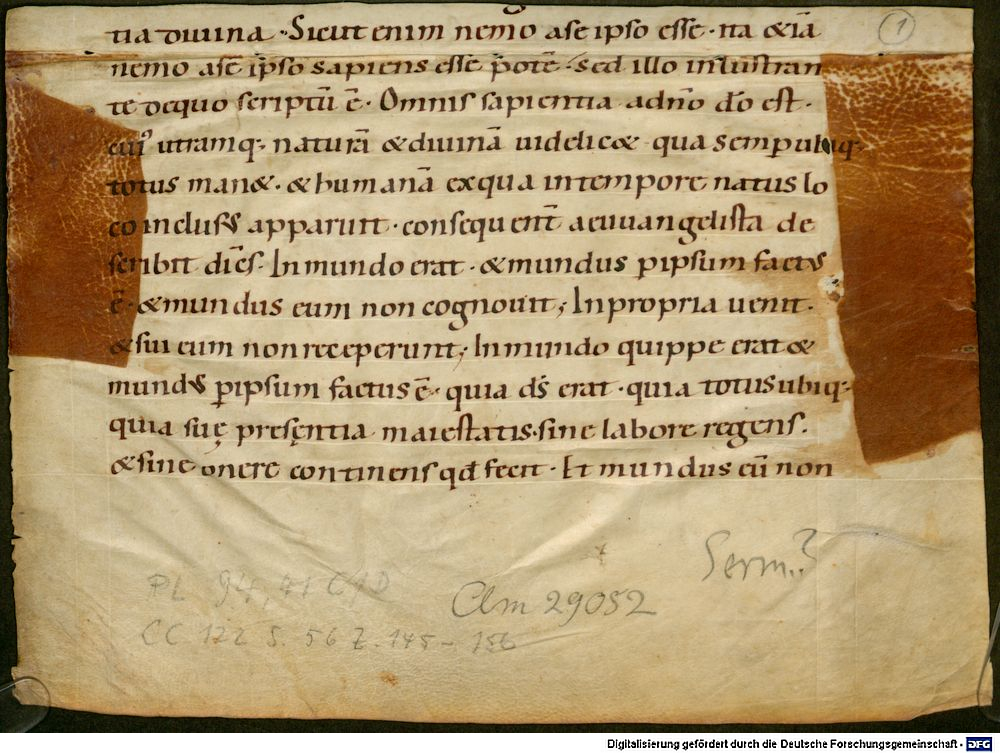 tia divina · Sicut enim nemo a se ipso esse · ita &iā
nemo a se ip̄so sapiens esse p̄otē · sed illo inlustran
te de quo scriptū ē · Omnis sapientia a dn̄o dō est ·
cui᾽ utramq; naturā & divinā videlic& qua semp ubiq;
totus man& · & humanā ex qua in tempore natus lo
co inclusus apparuit · consequent̄ aeuuangelista de
scribit dic̄s · In mundo erat · & mundus p̱ ipsum factus
ē · & mundus eum non cognovit ; In propria venit ·
& sui eum non receperunt ; In mundo quippe erat &
mundus p̱ ipsum factus ē · quia ds̄ erat · quia totus ubiq;
quia suę pręsentia maiestatis · sine labore regens ·
& sine onere continens qđ fecit · Et mundus eū non
1
Serm.
PL 94, 41 C/D
Clm 29052
CC 122 S. 56 Z. 145 - 156
Digitalisierung gefördert durch die Deutsche Forschungsgemeinschaft - DFG